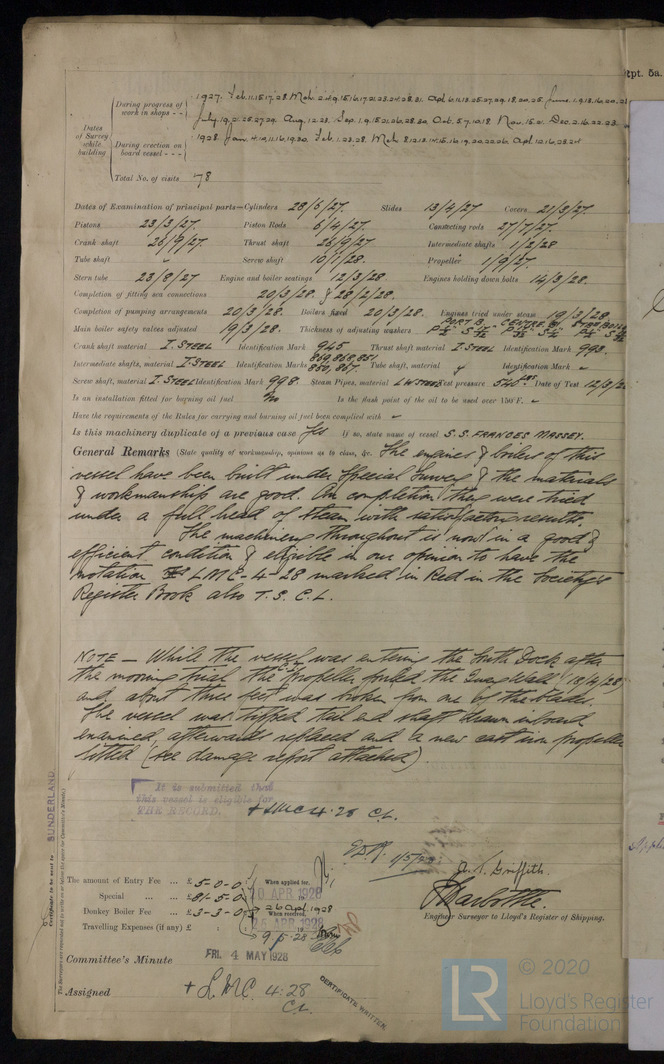 Rpt. 5a.
Dates of Survey while building
During progress of work in shops - -
1927. Feb. 11.15.17.28. Mch. 2.4.9.15.16.17.21.23.24.28.31. Apl. 6.11.13.25.27.29. 18.20.25. June. 1.9.18.16.20.21
July. 19.2.25.27.29. Aug. 12.23. Sep. 1.9.15.21.26.28.30. Oct. 5.7.10.18 Nov. 15. Dec. 2.16.22.23.
During erection on board vessel - - -
1928. Jan. 4.10.11.16.19.30. Feb. 1.23.28. Mch. 8.12.13.14.15.16.19.20.22.26. Apl. 12.16.23.24
Total No. of visits 78
Dates of Examination of principal parts—Cylinders 28/6/27. Slides 13/4/27 Covers 21/3/27.
Pistons 23/3/27. Piston Rods 6/4/27. Connecting rods 27/7/27.
Crank shaft 26/9/27. Thrust shaft 26/9/27 Intermediate shafts 1/2/28
Tube shaft Screw shaft 10/1/28. Propeller 1/9/27.
Stern tube 23/8/27 Engine and boiler seatings 12/3/28. Engines holding down bolts 14/3/28.
Completion of fitting sea connections 20/3/28. & 28/2/28.
Completion of pumping arrangements 20/3/28. Boilers fixed 20/3/28. Engines tried under steam 19/3/28.
Main boiler safety valves adjusted 19/3/28. Thickness of adjusting washers PORT B. CENTRE B. STARBD B.
Crank shaft material I. STEEL Identification Mark 945 Thrust shaft material I. STEEL Identification Mark 993.
Intermediate shafts, material I. STEEL Identification Marks 869, 868, 851, 850, 867. Tube shaft, material Identification Mark
Screw shaft, material I. STEEL Identification Mark 998. Steam Pipes, material L.W STEEL Test pressure 545 lbs Date of Test 12/3/2
Is an installation fitted for burning oil fuel No Is the flash point of the oil to be used over 150°F.
Have the requirements of the Rules for carrying and burning oil fuel been complied with
Is this machinery duplicate of a previous case Yes If so, state name of vessel S.S. FRANCES MASSEY.
General Remarks (State quality of workmanship, opinions as to class, &c. The engines & boilers of this
vessel have been built under Special Survey & the materials
& workmanship are good. On completion they were tried
under a full head of steam with satisfactory results.
The machinery throughout is now in a good &
efficient condition & eligible in our opinion to have the
notation LMC-4-28 marked in Red in the Society's
Register Book also T.S. C.L.
NOTE — While the vessel was entering the South Dock after
the mooring trial the C.I. propeller fouled the Quay Wall (13/4/28)
and about three feet was broken from one of the blades.
The vessel was tipped tail end shaft drawn inboard
examined, afterwards replaced and a new cast iron propeller
fitted (see damage report attached).
It is submitted that
this vessel is eligible for
THE RECORD. + LMC 4.28 C.L.
1/5/28
A. T. Griffith
Engineer Surveyor to Lloyd's Register of Shipping.
The amount of Entry Fee ... £ 5-0-0
Special ... £ 81-5-0
Donkey Boiler Fee ... £ 3-3-0
Travelling Expenses (if any) £
When applied for,
10 APR 1928
26 Apl 1928
When received,
25 APR 1928
9.5.28
Committee's Minute FRI. 4 MAY 1928
Assigned + LMC. 4.28
CL.
CERTIFICATE WRITTEN
Certificate to be sent to SUNDERLAND
The Surveyors are requested not to write on or below the space for Committee's Minute.
LR
© 2020
Lloyd's Register
Foundation